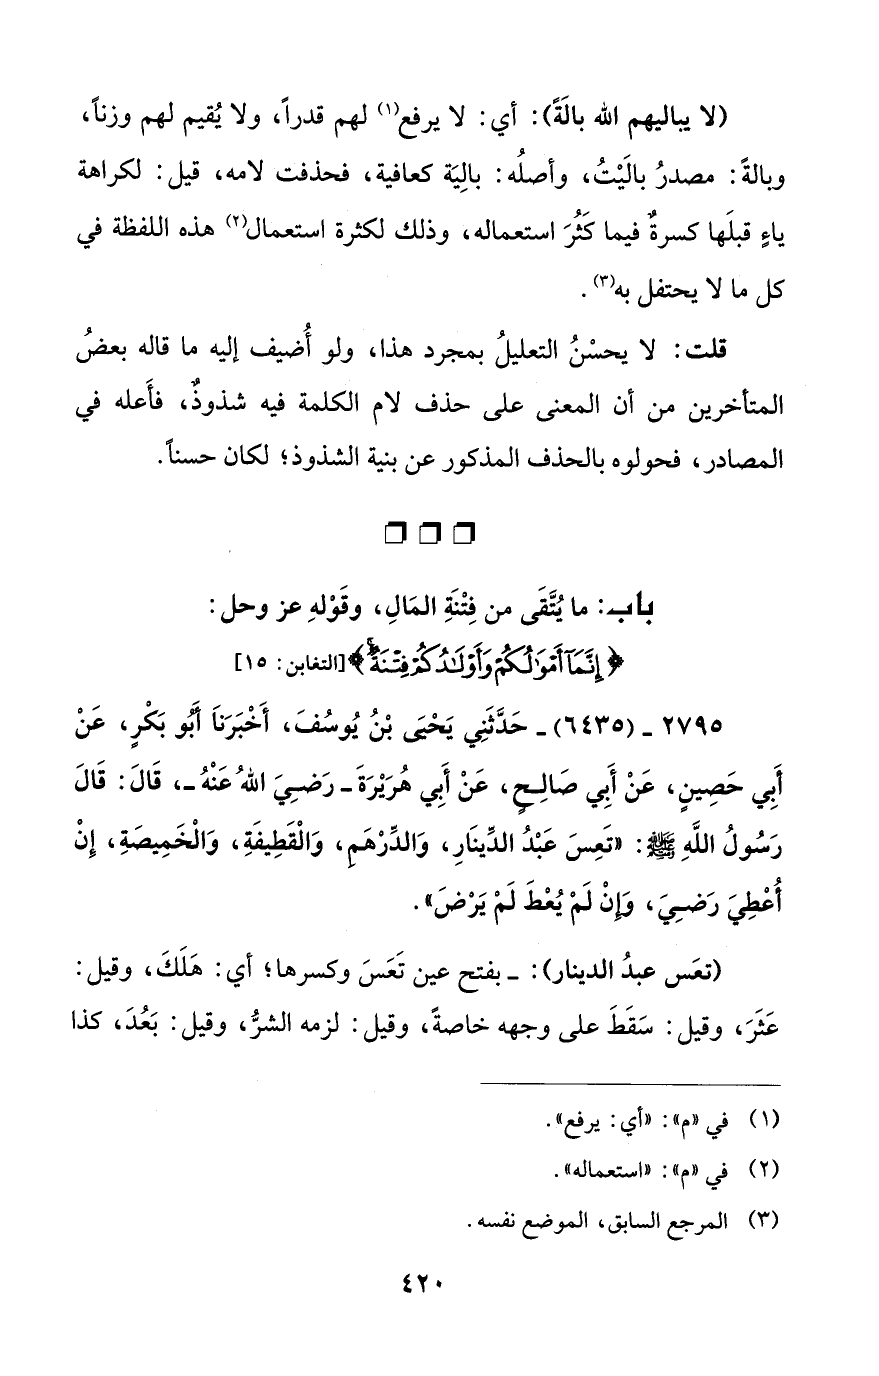 (لا يباليهم الله بالَةً): أي: لا يرفع(١) لهم قدراً، ولا يُقيم لهم وزناً،
وبالةً: مصدرُ بالَيْتُ، وأصلُه: بالِيَة كعافية، فحذفت لامه، قيل: لكراهة
ياءٍ قبلَها كسرةٌ فيما كَثُرَ استعماله، وذلك لكثرة استعمال(٢) هذه اللفظة في
كل ما لا يحتفل به(٣).
قلت: لا يحسْنُ التعليلُ بمجرد هذا، ولو أُضيف إليه ما قاله بعضُ
المتأخرين من أن المعنى على حذف لام الكلمة فيه شذوذٌ، فأَعله في
المصادر، فحولوه بالحذف المذكور عن بنية الشذوذ؛ لكان حسناً.
❒ ❒ ❒
باب: ما يُتَّقَى من فِتْنَةِ المَالِ، وقَوْلهِ عز وحل:
﴿إِنَّمَآ أَمْوَٰلُكُمْ وَأَوْلَٰدُكُمْ فِتْنَةٌ﴾ [التغابن: ١٥]
٢٧٩٥ ـ (٦٤٣٥) ـ حَدَّثَنِي يَحْيَى بْنُ يُوسُفَ، أَخْبَرَنَا أَبُو بَكْرٍ، عَنْ
أَبِي حَصِينٍ، عَنْ أَبِي صَالِحٍ، عَنْ أَبِي هُرَيْرَةَ ـ رَضِيَ اللهُ عَنْهُ ـ، قَالَ: قَالَ
رَسُولُ اللَّهِ ﷺ: «تَعِسَ عَبْدُ الدِّينَارِ، وَالدِّرْهَمِ، وَالْقَطِيفَةِ، وَالْخَمِيصَةِ، إِنْ
أُعْطِيَ رَضِيَ، وَإِنْ لَمْ يُعْطَ لَمْ يَرْضَ».
(تعَس عبدُ الدينار): ـ بفتح عين تَعَسَ وكسرها؛ أي: هَلَكَ، وقيل:
عَثَرَ، وقيل: سَقَطَ على وجهه خاصةً، وقيل: لزمه الشرُّ، وقيل: بَعُدَ، كذا
(١) في «م»: «أي: يرفع».
(٢) في «م»: «استعماله».
(٣) المرجع السابق، الموضع نفسه.
٤٢٠